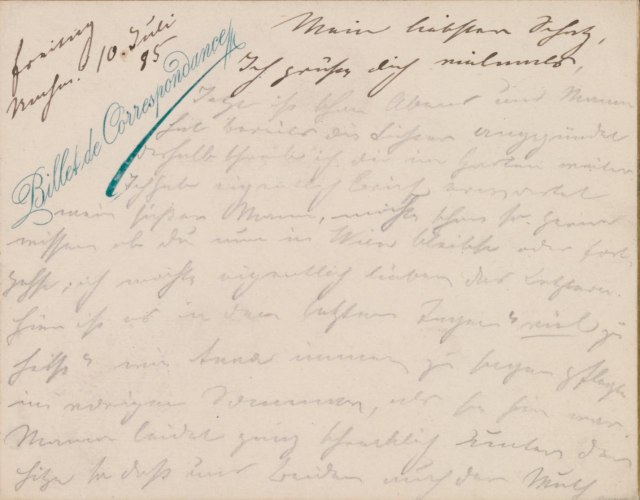 Freitag
Nachm. 10. Juli
85
Billet de Correspondance
Mein liebster Schatz,
Ich grüße dich vielmals,
Jetzt ist schon Abend und Mama
hat bereits die angezündet
deshalb ich dir im Garten weiter
Ich habe eigentlich erwartet
mein süßer Mann, möchte schon so gerne
wissen ob du nun in Wien bleibst oder fort
gehst, ich möchte eigentlich lieber das Letztere.
Hier ist es in den letzten Tagen "viel zu
heiß" wie Anna immer zu sagen pflegte
im vorigen Sommer, als sie hier war.
Mama leidet ganz schrecklich unter der
Hitze so daß uns beiden auch der Muth